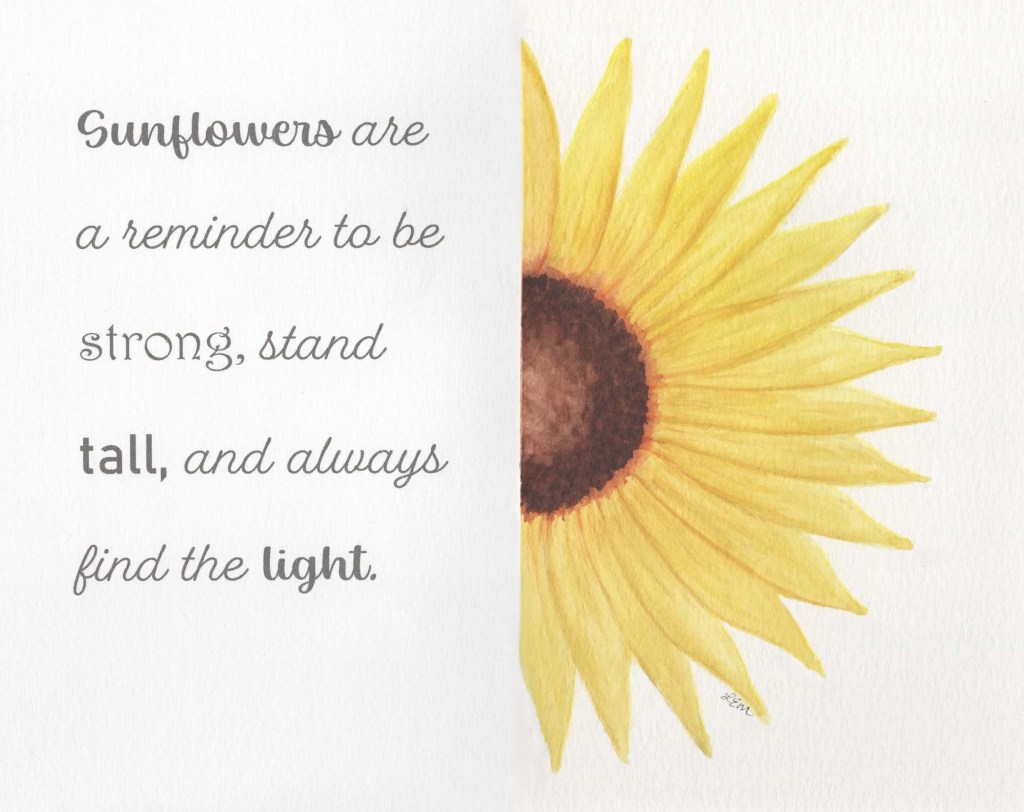 Sunflowers are
a reminder to be
strong, stand
tall, and always
find the light.
LEM